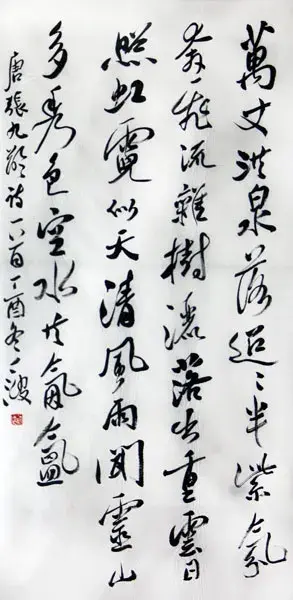 萬丈洪泉落迢〻半紫氛
奔飛流雜樹灑落出重雲日
照虹霓似天清風雨聞靈山
多秀色空水共氤氳
唐張九齡詩一首丁酉冬